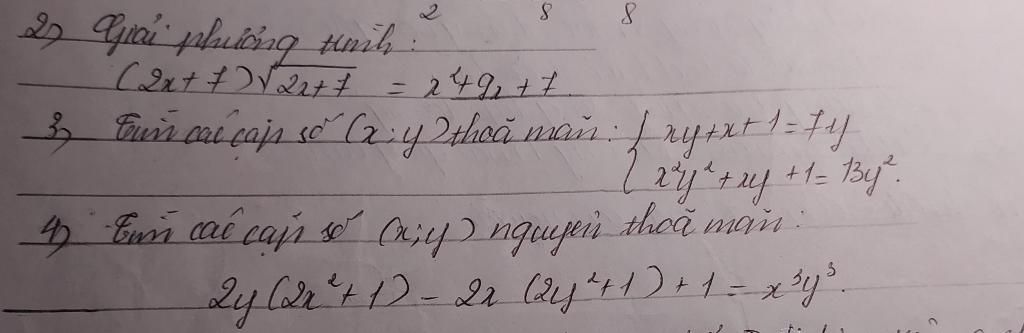 2 8 8
2) Giải phương trình:
(2x+7)√(2x+7) = x²+9x+7.
3) Tìm các cặp số (x;y) thoả mãn: { xy+x+1=7y
x²y²+xy+1=13y².
4) Tìm các cặp số (x;y) nguyên thoả mãn:
2y(2x²+1) - 2x(2y²+1)+1 = x³y³.